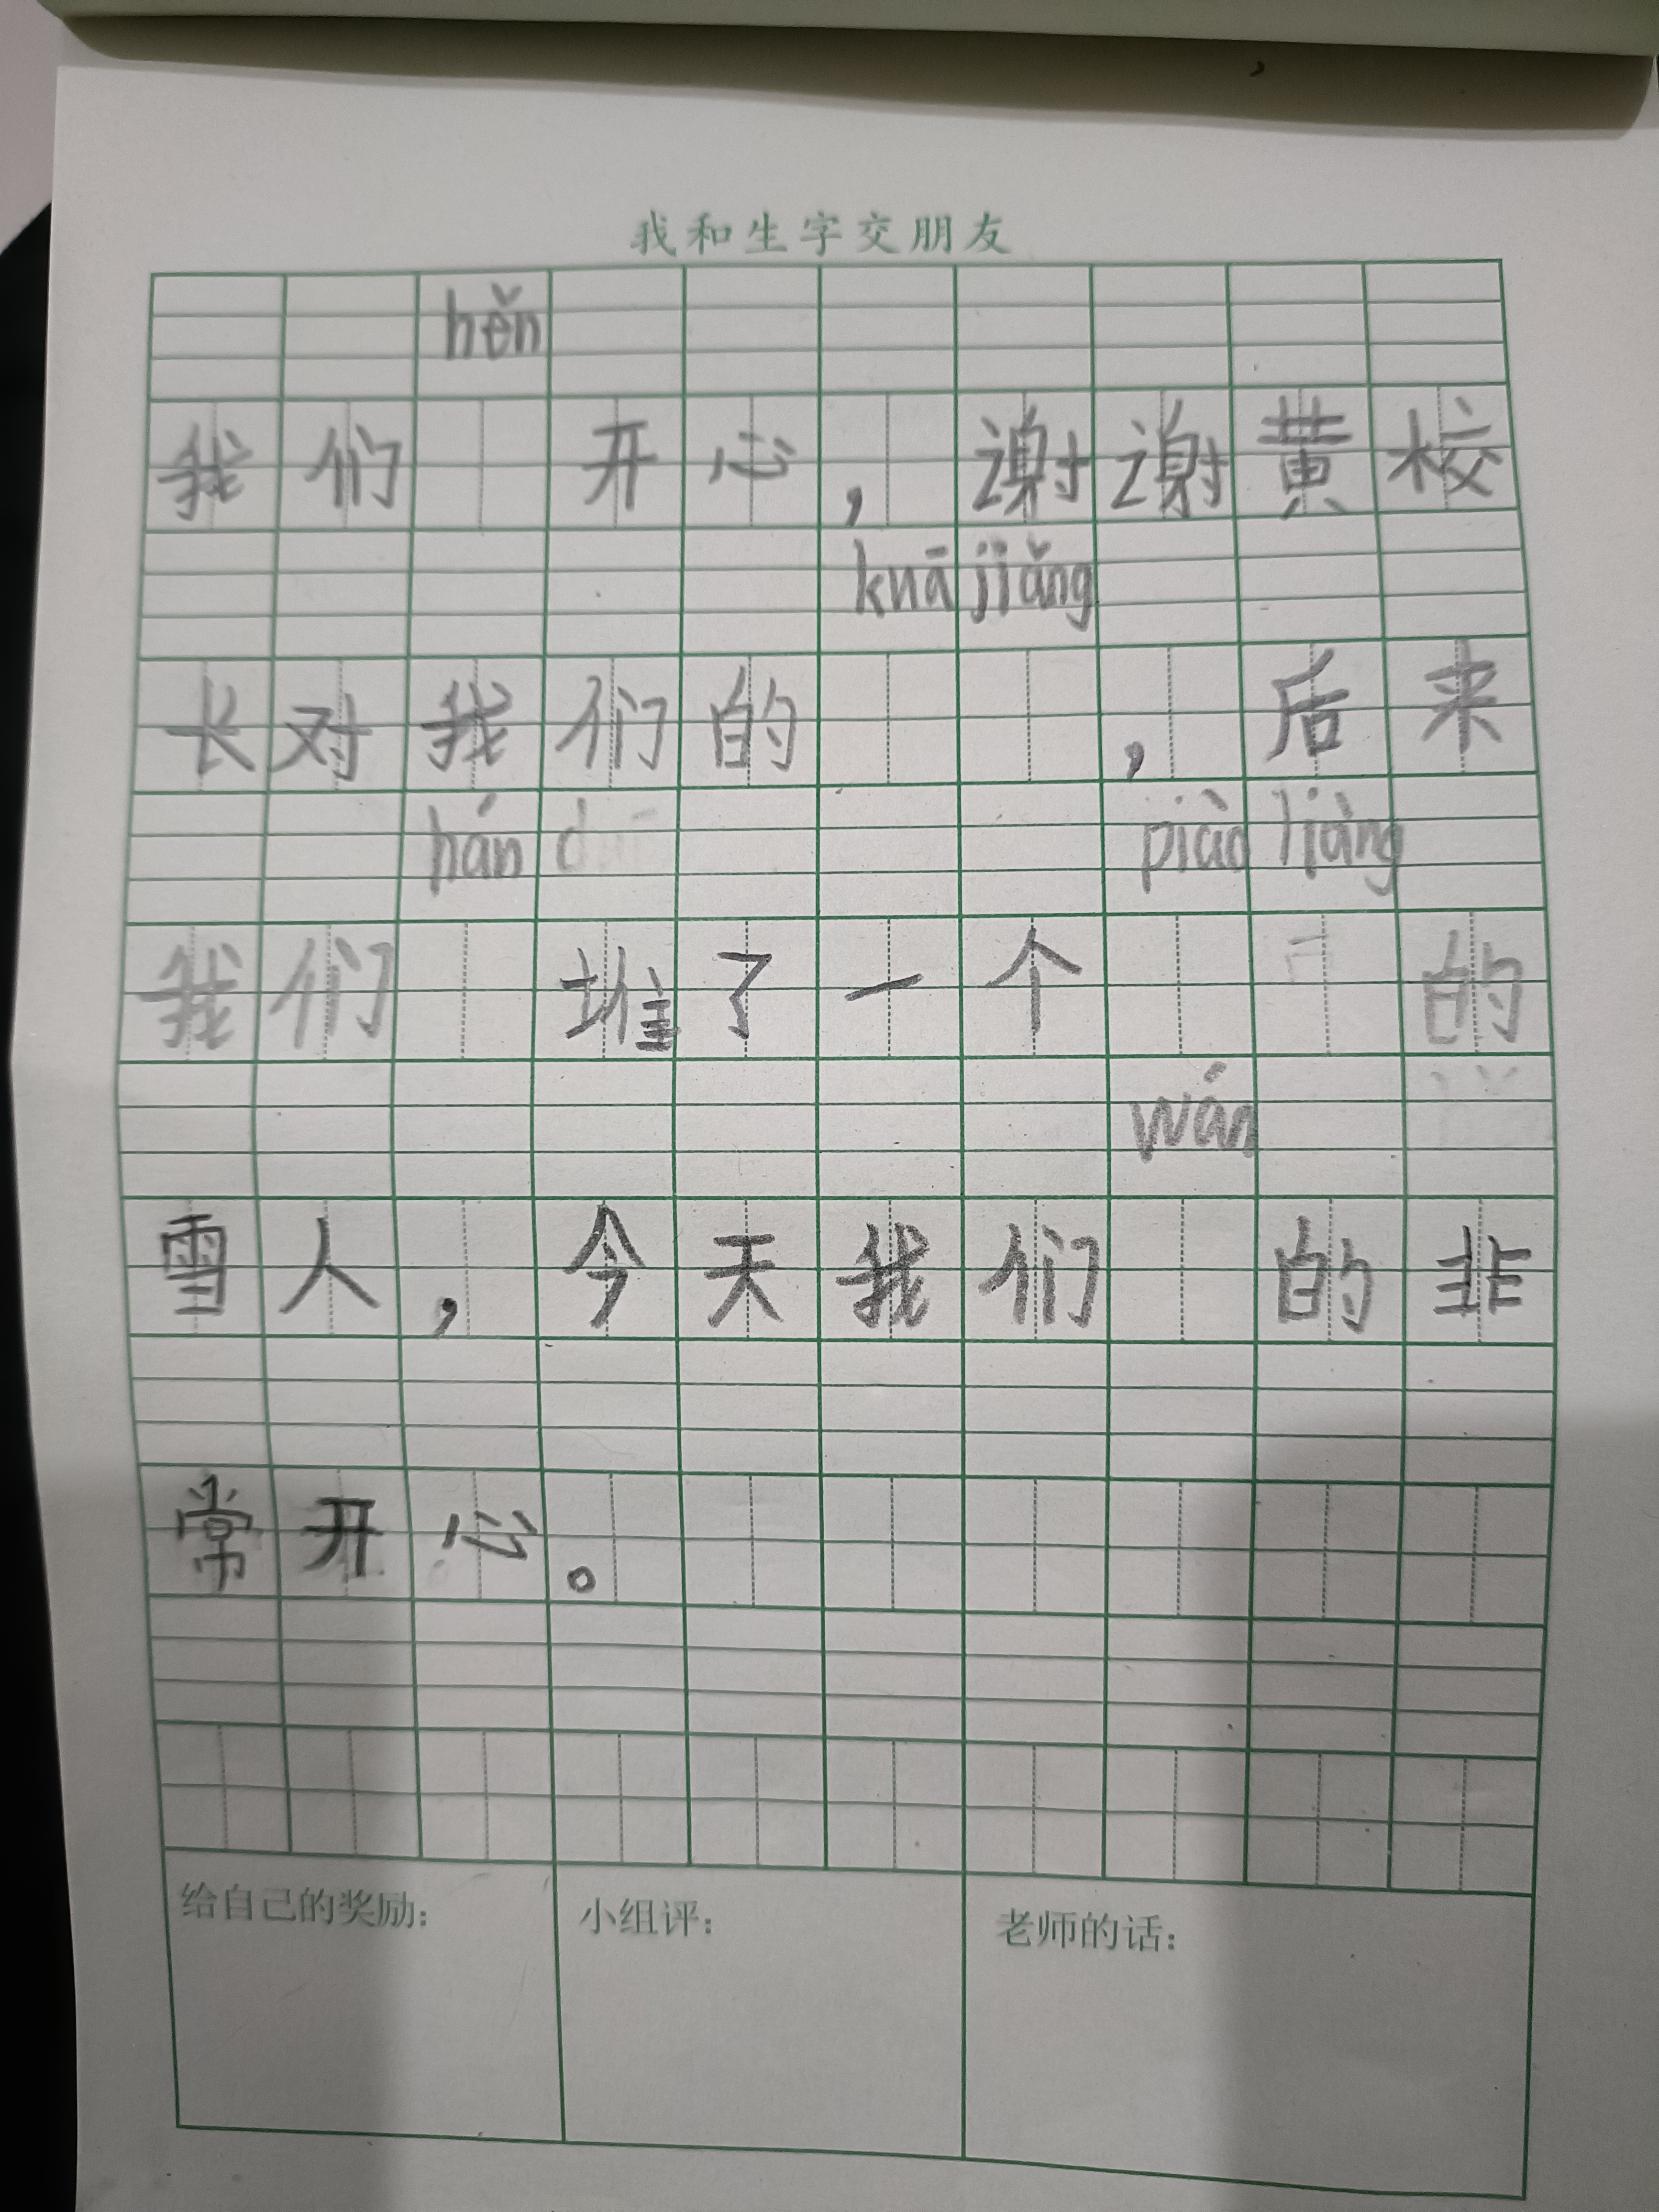 我和生字交朋友
hěn
我们 开心，谢谢黄校
kuā jiǎng
长对我们的 ，后来
hán piào liàng
我们 堆了一个 的
wán
雪人，今天我们 的非
常开心。
给自己的奖励： 小组评： 老师的话：